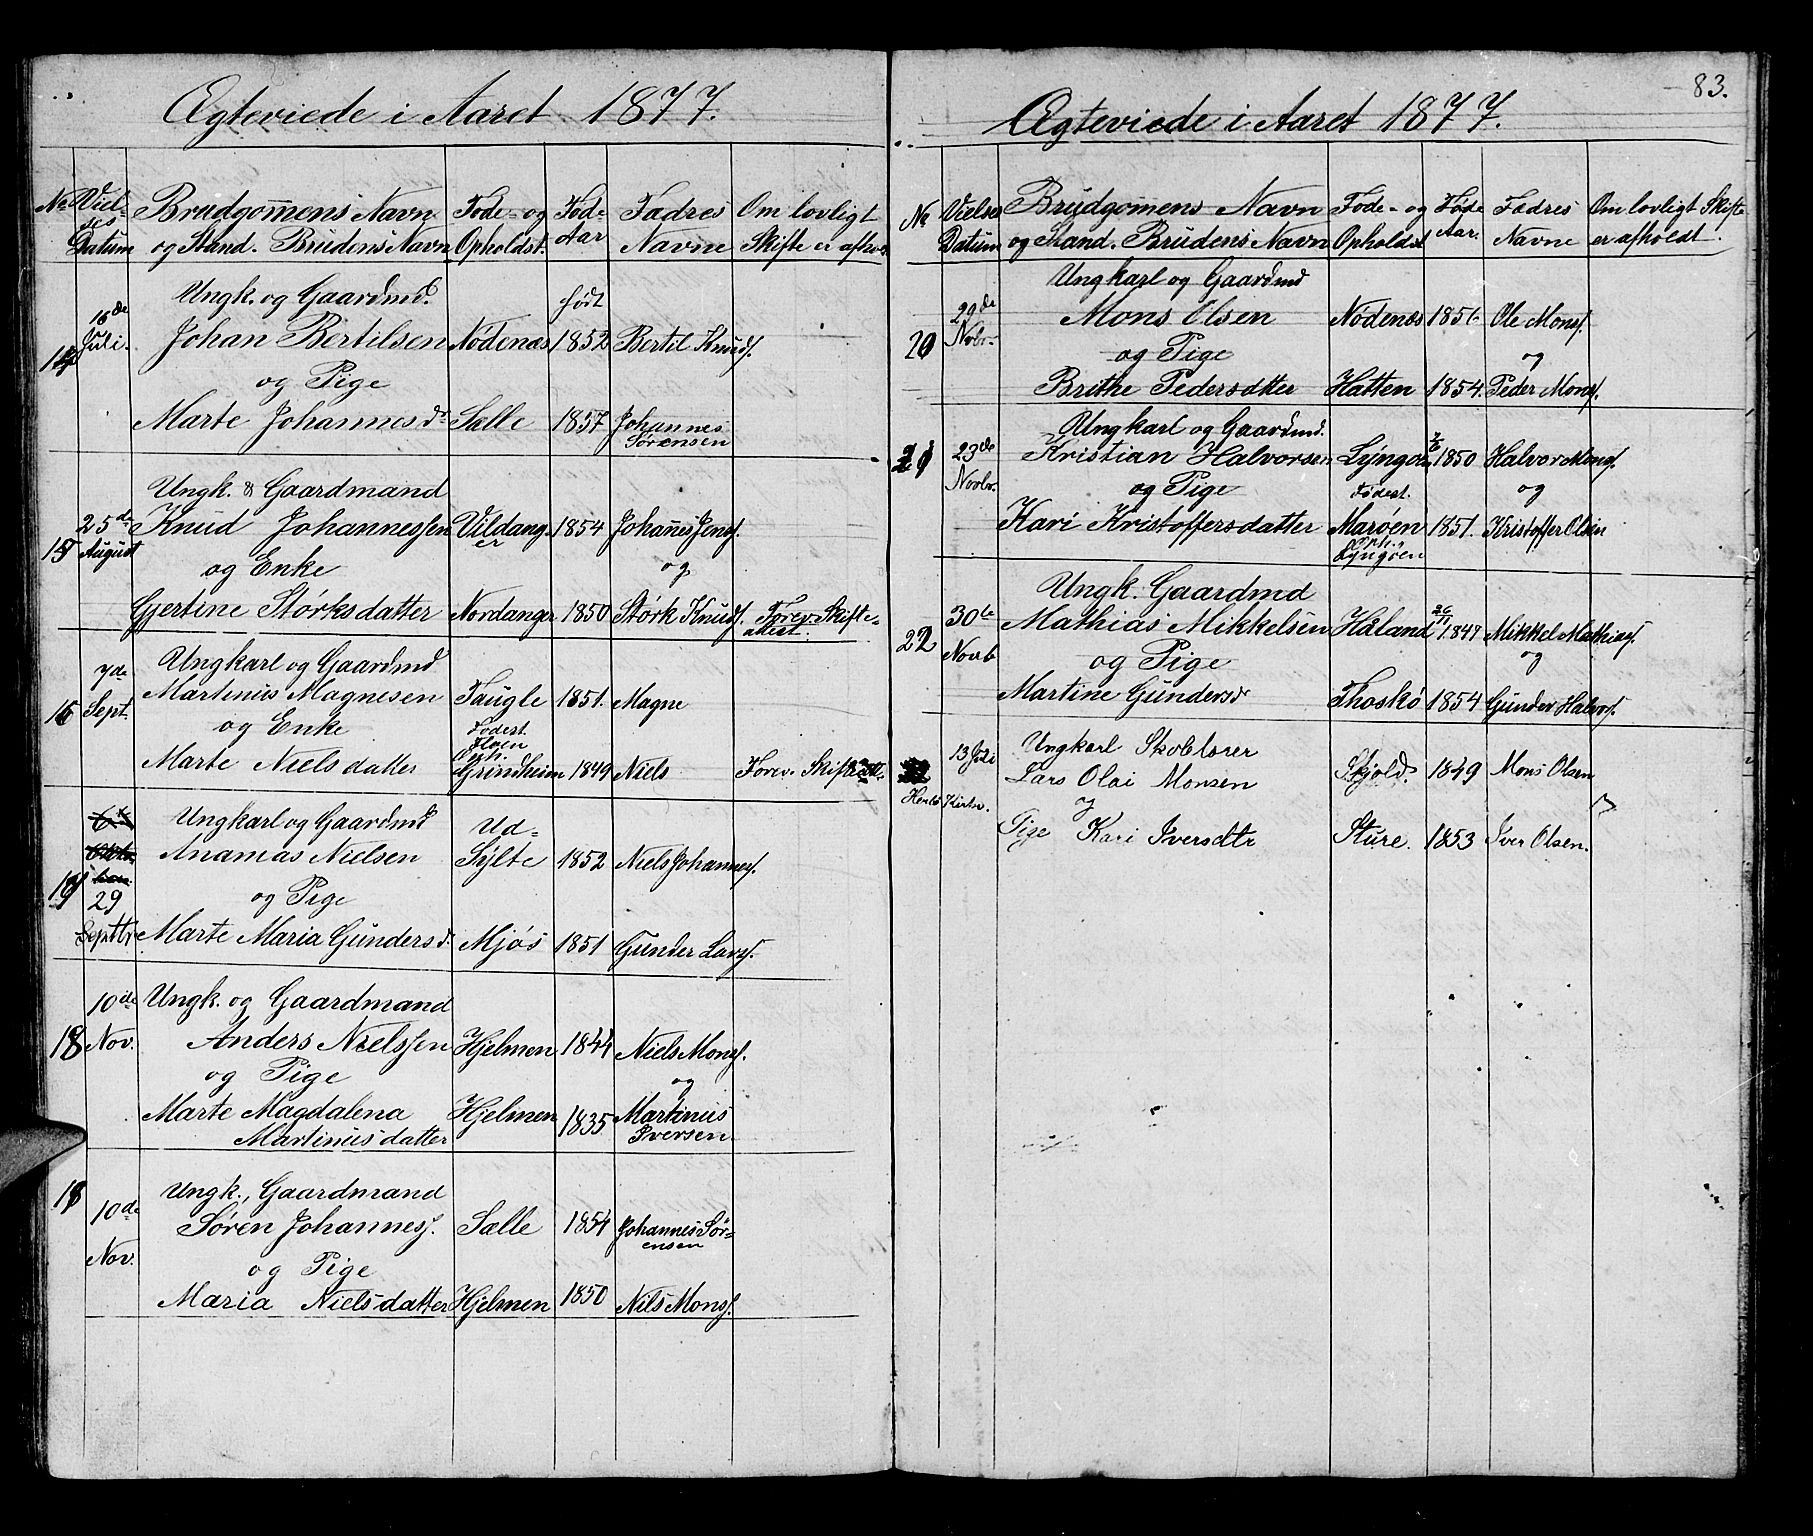 Ægteviede i Aaret 1877.
No Viel-ses Datum Brudgomens Navn og Stand. Brudens Navn Føde- og Opholdst. Fød-Aar Fædres Navne Om lovligt Skifte er afhol
Ungk. og Gaardmd. født
16de Juli. Johan Bertilsen Nødenæs 1852 Bertil Knuds.
14 og Pige
Marte Johannesd. Sælle 1857 Johannes Sørensen
Ungk. & Gaardmand
15 25de August Knud Johannessen Vildanger 1854 Johannes Jens.
og Enke og
Gjertine Størksdatter Nordanger 1850 Størk Knuds. Forev. Skifte-attest.
Ungkarl og Gaardmd
16 7de Sept. Martinus Magnesen Taugle 1851. Magne
og Enke Fødest. Floen
Marte Nielsdatter Oph. Grindheim 1849 Niels Forev. Skifteatt.
Ungkarl og Gaardmd Ud-
Anamas Nielsen Sylte 1852 Niels Johannes.
29 og Pige
Septbr Marte Maria Gundersd. Mjøs 1851 Gunder Lars.
10de Ungk. og Gaardmand
18 Nov. Anders Nielssen Hjelmen 1844 Niels Mons.
og Pige og
Marte Magdalena Hjelmen 1835 Martinus
Martinusdatter Iversen
Ungk., Gaardmand
10de Søren Johannes. Sælle 1854 Johannes Sør-ensen
Nov. og Pige
Maria Nielsdatter Hjelmen 1850 Nils Mons.
83.
Ægteviede i Aaret 1877.
No Vielses Datum Brudgomens Navn og Stand. Brudens Navn Føde- og Opholdst Føde Aar. Fædres Navne Om lovligt Skifte er afholdt.
Ungkarl og Gaardmd
20 29de Novbr. Mons Olsen Nødenæs 1856 Ole Mons.
og Pige og
Brithe Pedersdatter Hatten 1854. Peder Mons.
Ungkarl og Gaardmd.
21 23de Novbr. Kristian Halvorsen Lyngøen 1850 Halvor Mons.
og Pige Fødest. og
Kari Kristoffersdatter Marøen 1851. Kristoffer Olsen
Oph. Lyngøen
Ungk. Gaardmd
22 30te Novb Mathias Mikkelsen Håland 26/11 1847 Mikkel Mathias.
og Pige og
Martine Gundersd Thoskø 1854 Gunder Halvs.
13 Juli Ungkarl Skoletærer
Lars Olai Monsen Skjold. 1849 Mons Olsen
Herlø Kirke. og
Pige Kari Iversdtr Sture. 1853 Iver Olsen.